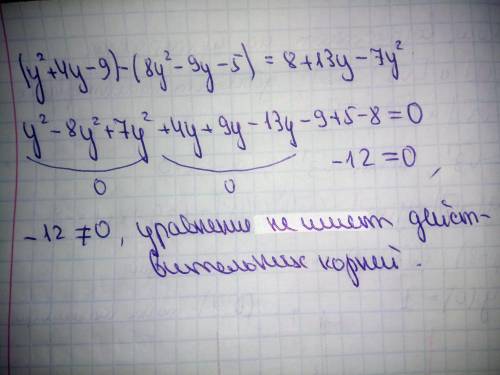 (y²+4y-9)-(8y²-9y-5)=8+13y-7y²
y²-8y²+7y²+4y+9y-13y-9+5-8=0
0 0 -12=0,
-12≠0, уравнение не имеет дейст-
вительних корней.